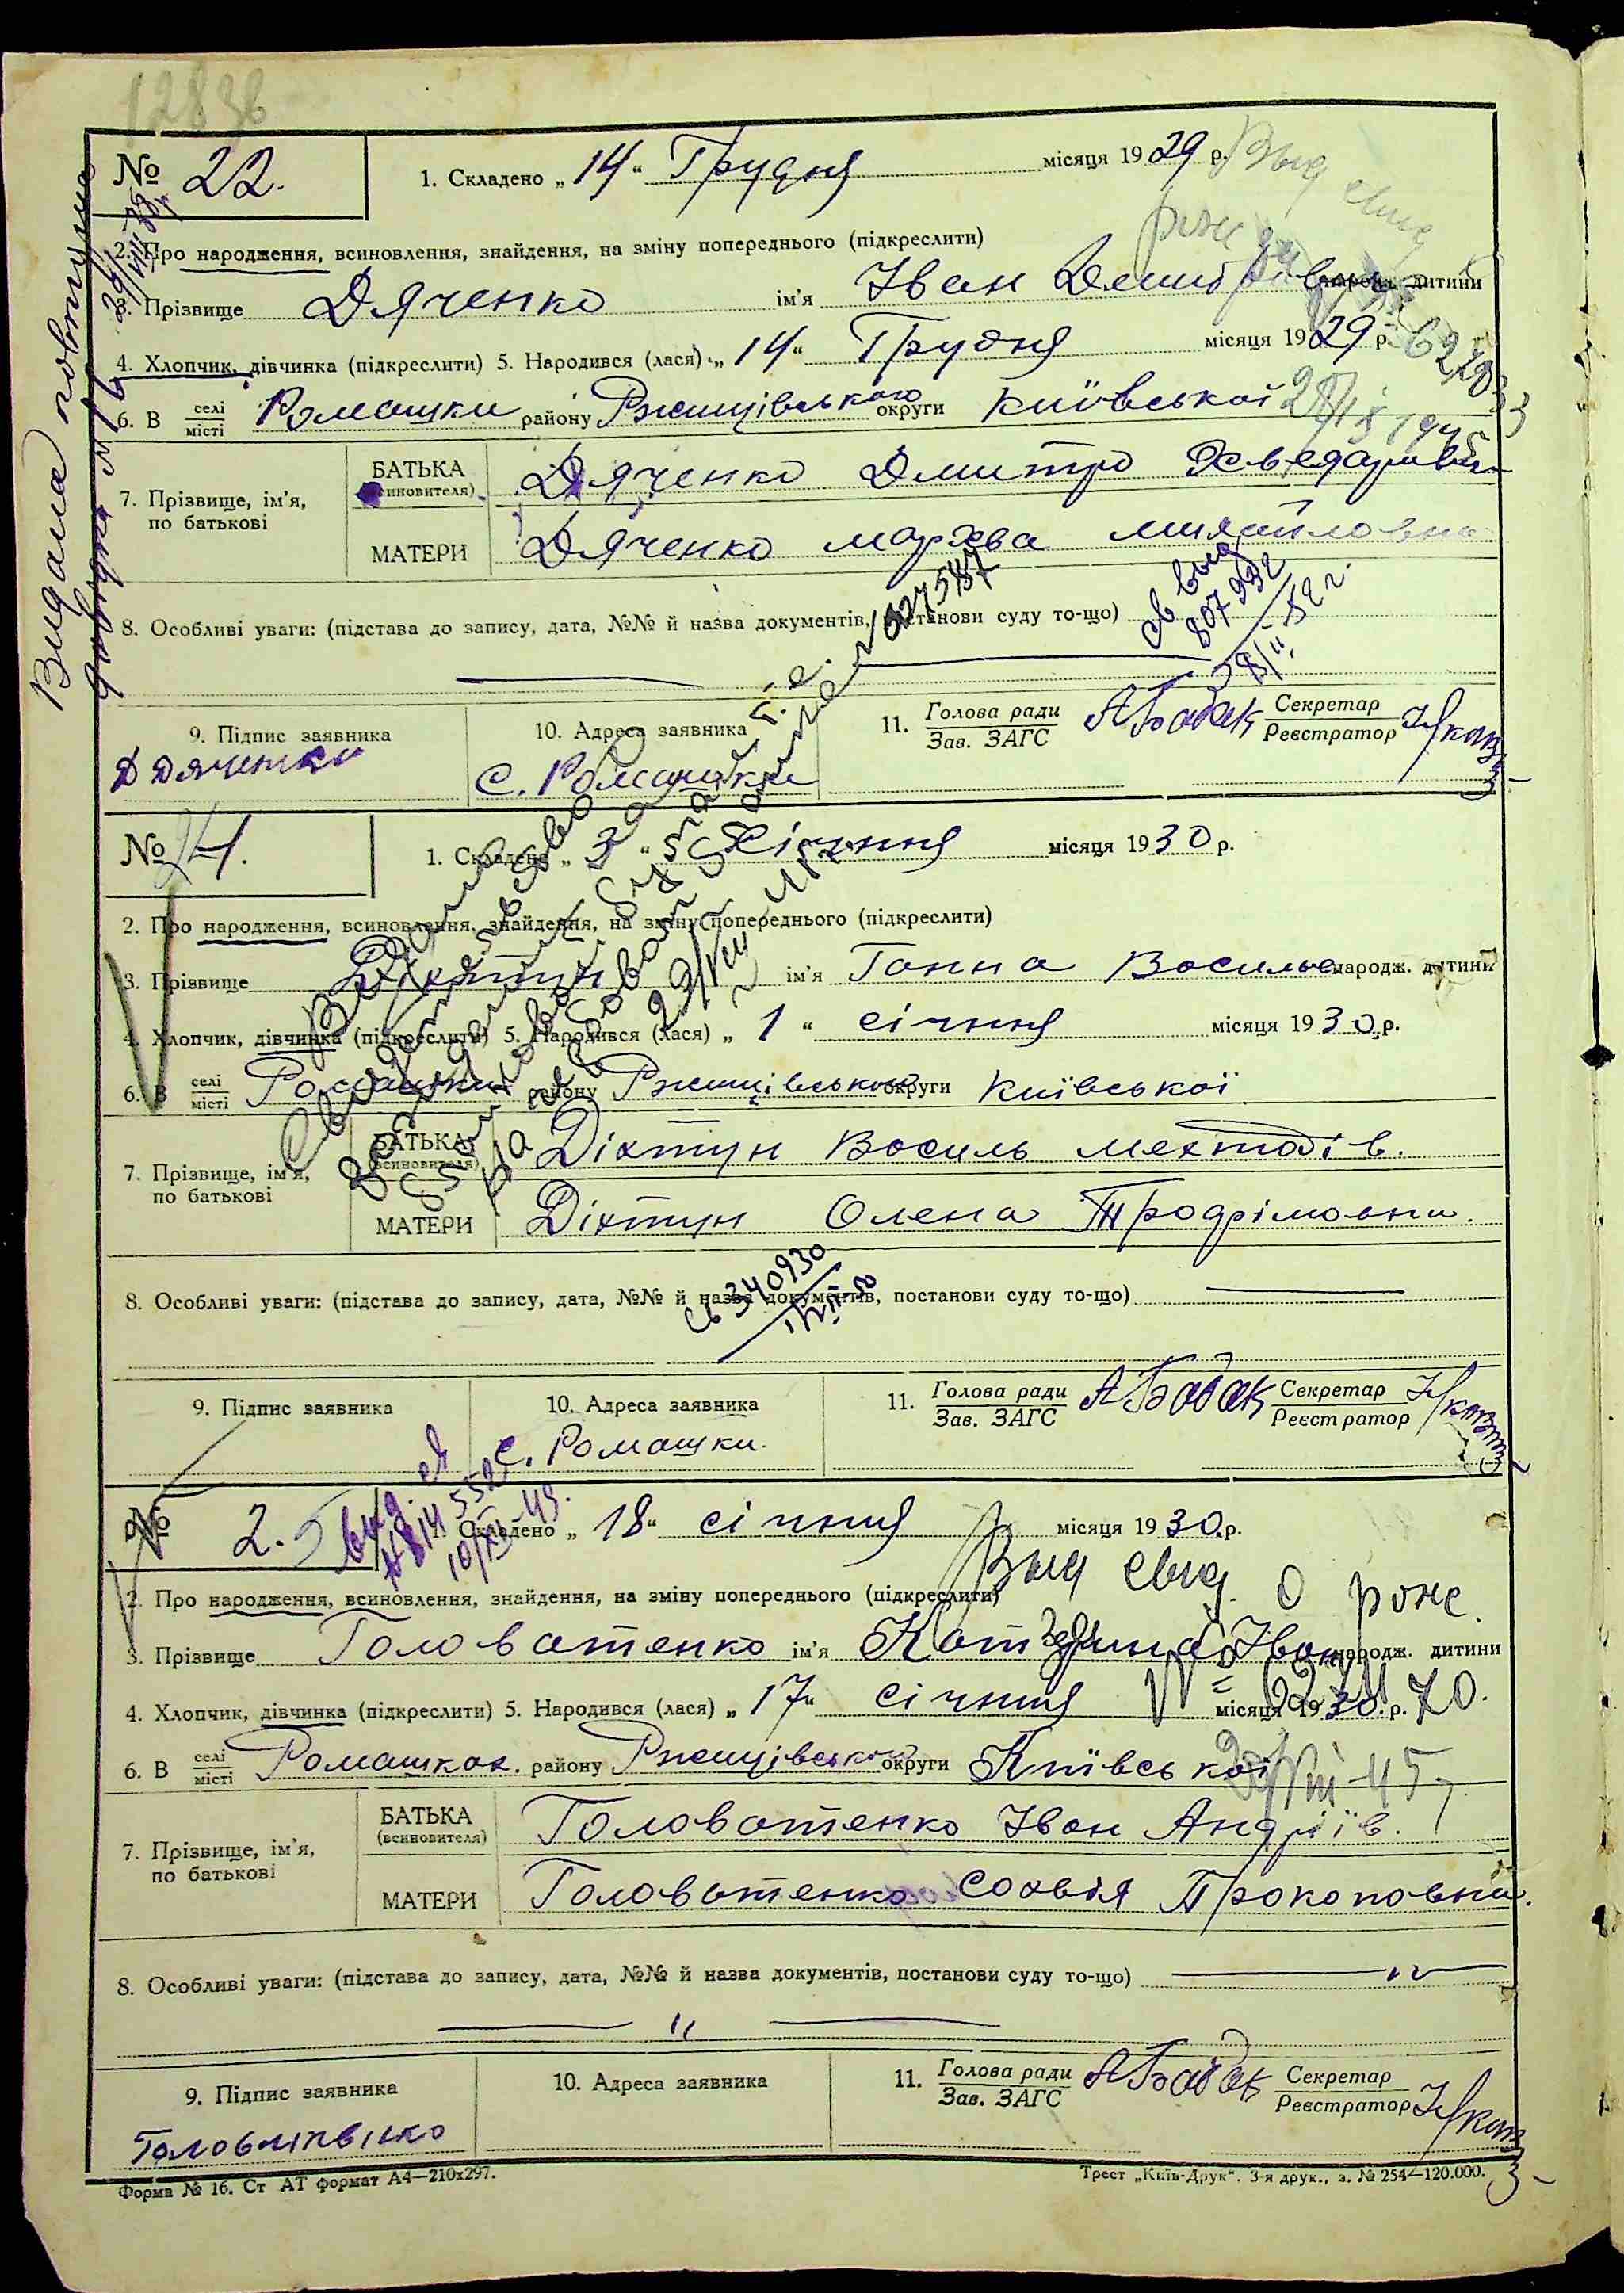 12836
№ 22. 1. Складено „ 14 “ Грудня місяця 1929 р.
2. Про народження, всиновлення, знайдення, на зміну попереднього (підкреслити)
3. Прізвище Дяченко ім'я Іван Дмитрів народж. дитини
4. Хлопчик, дівчинка (підкреслити) 5. Народився (лася) „ 14 “ Грудня місяця 1929 р.
6. В селі місті Ромашки району Ржищівського округи Київської
7. Прізвище, ім'я, по батькові
БАТЬКА (всиновителя) Дяченко Дмитро
МАТЕРИ Дяченко Мархва Михайловна
8. Особливі уваги: (підстава до запису, дата, №№ й назва документів, постанови суду то-що)
св выд
807932
Видана повторна
довідка № 16
9. Підпис заявника 10. Адреса заявника 11. Голова ради Зав. ЗАГС АБабак Секретар Реєстратор
Д Дяченко с. Ромашки
№ 1. Складено „ 3 “ Січння місяця 1930 р.
2. Про народження, всиновлення, знайдення, на зміну попереднього (підкреслити)
3. Прізвище Діхтун ім'я Ганна Василье народж. дитини
4. Хлопчик, дівчинка (підкреслити) 5. Народився (лася) „ 1 “ січння місяця 1930 р.
6. В селі місті Ромашки району Ржищівського округи Київської
7. Прізвище, ім'я, по батькові
БАТЬКА (всиновителя) Діхтун Василь Мехтодів.
МАТЕРИ Діхтун Олена Трофімовна.
8. Особливі уваги: (підстава до запису, дата, №№ й назва документів, постанови суду то-що)
Св 340930
9. Підпис заявника 10. Адреса заявника 11. Голова ради Зав. ЗАГС АБабак Секретар Реєстратор
с. Ромашки.
№ 2. 1. Складено „ 18 “ січння місяця 1930 р.
выд. св
№ 814552
10/XI-49.
Выд свид. о рож.
2. Про народження, всиновлення, знайдення, на зміну попереднього (підкреслити)
3. Прізвище Головатенко ім'я Катерина Іван народж. дитини
4. Хлопчик, дівчинка (підкреслити) 5. Народився (лася) „ 17 “ січння місяця 1930 р.
6. В селі місті Ромашках. району Ржищівського округи Київської
7. Прізвище, ім'я, по батькові
БАТЬКА (всиновителя) Головатенко Іван Андріїв.
МАТЕРИ Головатенко Сохвія Прокоповна.
8. Особливі уваги: (підстава до запису, дата, №№ й назва документів, постанови суду то-що)
9. Підпис заявника 10. Адреса заявника 11. Голова ради Зав. ЗАГС АБабак Секретар Реєстратор
Головатенко
Форма № 16. Ст АТ формат А4—210х297. Трест „Київ-Друк“. 3-я друк., з. № 254—120.000.